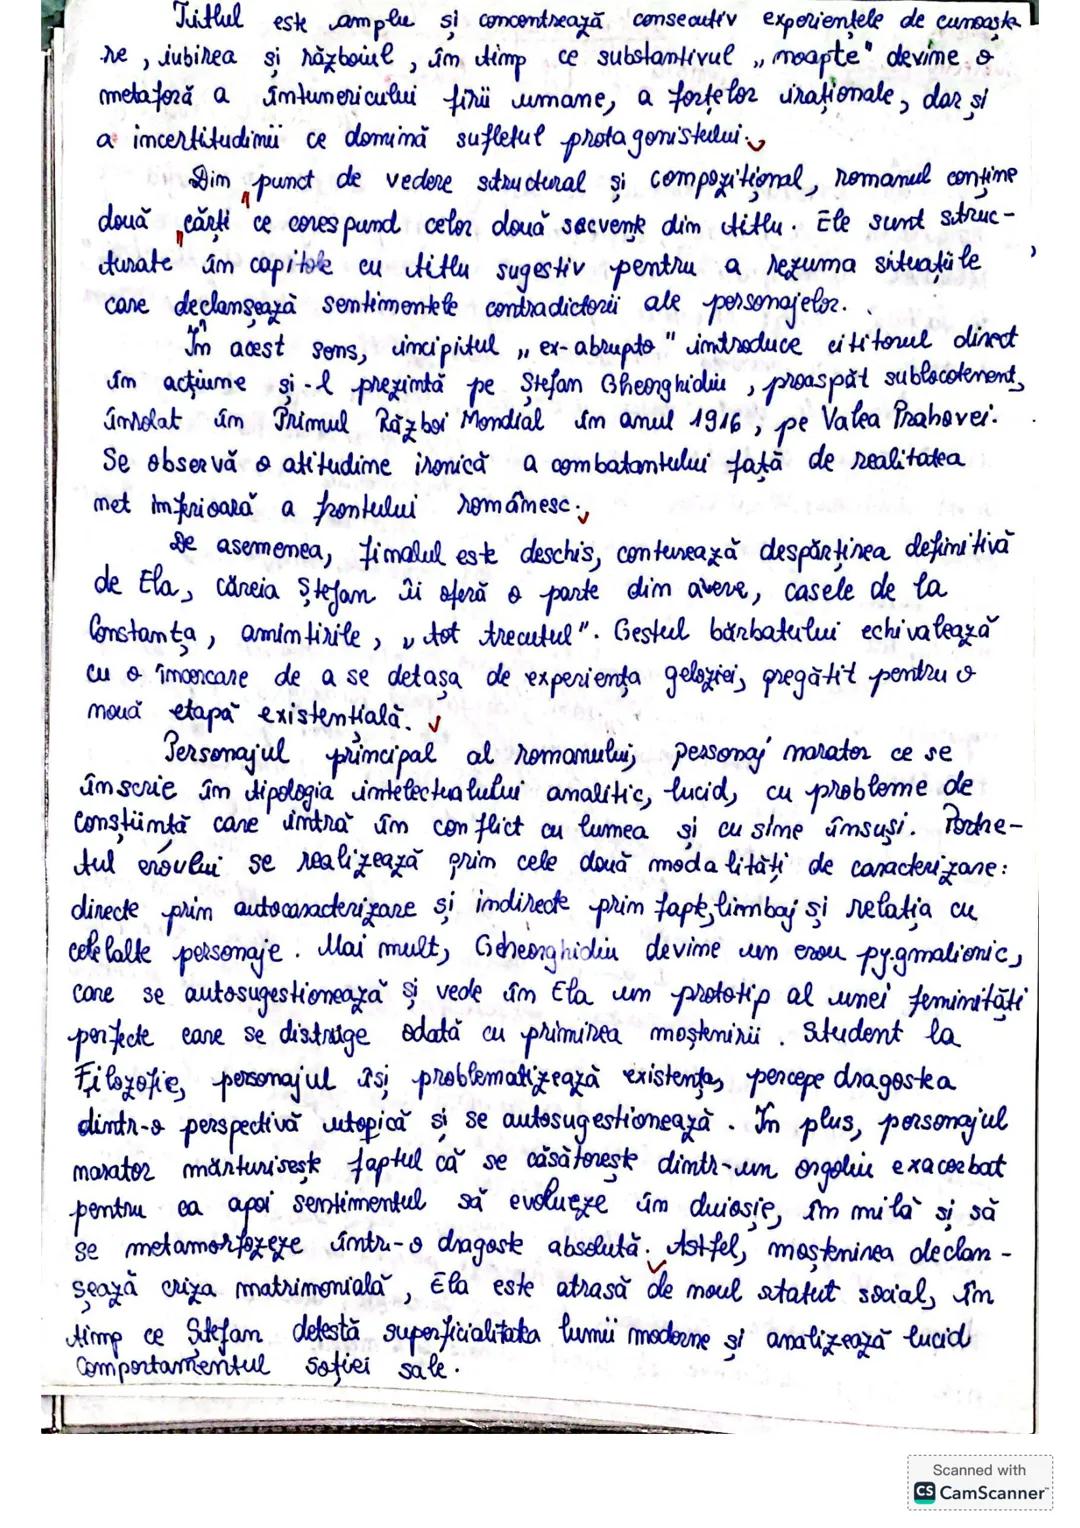 Titlul este amplu și concentrează consecutiv experiențele de cunoaște
re, iubirea și războiul, în timp ce substantivul „noapte" devine o
metaforă a întunericului firii umane, a forțelor iraționale, dar și
a incertitudinii ce domină sufletul protagonistului.
Din punct de vedere structural și compozițional, romanul conține
două cărți ce corespund celor două secvențe din titlu. Ele sunt struc-
turate în capitole cu titlu sugestiv pentru a rezuma situațiile
care declanșează sentimentele contradictorii ale personajelor.
În acest sens, incipitul „ex-abrupto" introduce cititorul direct
în acțiune și-l prezintă pe Ștefan Gheorghidiu, proaspăt sublocotenent,
înrolat în Primul Război Mondial în anul 1916, pe Valea Prahovei.
Se observă o atitudine ironică a combatantului față de realitatea
net inferioară a frontului românesc.
De asemenea, finalul este deschis, conturează despărțirea definitivă
de Ela, căreia Ștefan îi oferă o parte din avere, casele de la
Constanța, amintirile, „tot trecutul". Gestul bărbatului echivalează
cu o încercare de a se detașa de experiența geloziei, pregătit pentru o
nouă etapă existențială.
Personajul principal al romanului, personaj narator ce se
înscrie în tipologia intelectualului analitic, lucid, cu probleme de
conștiință care intră în conflict cu lumea și cu sine însuși. Portre-
tul eroului se realizează prin cele două modalități de caracterizare:
directe prin autocaracterizare și indirecte prin fapte, limbaj și relația cu
celelalte personaje. Mai mult, Gheorghidiu devine un erou pygmalionic,
care se autosugestionează și vede în Ela un prototip al unei feminități
perfecte care se distruge odată cu primirea moștenirii. Student la
Filozofie, personajul își problematizează existența, percepe dragostea
dintr-o perspectivă utopică și se autosugestionează. În plus, personajul
narator mărturisește faptul că se căsătorește dintr-un orgoliu exacerbat
pentru ca apoi sentimentul să evolueze în duioșie, în milă și să
se metamorfozeze într-o dragoste absolută. Astfel, moștenirea declan-
șează criza matrimonială, Ela este atrasă de noul statut social, în
timp ce Ștefan detestă superficialitatea lumii moderne și analizează lucid
comportamentul soției sale.
Scanned with
CS CamScanner